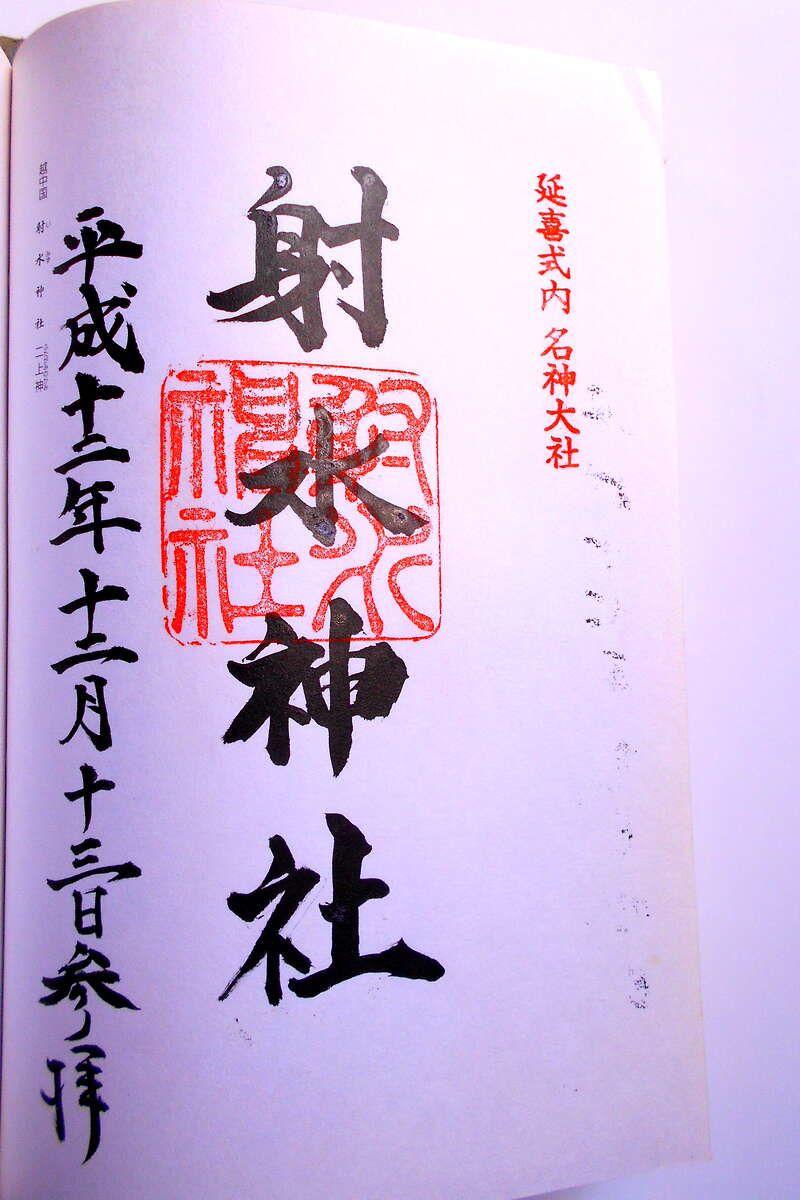 延喜式内 名神大社
射水神社
射水神社
平成十二年十二月十三日参拝
越中国 射水神社 二上神